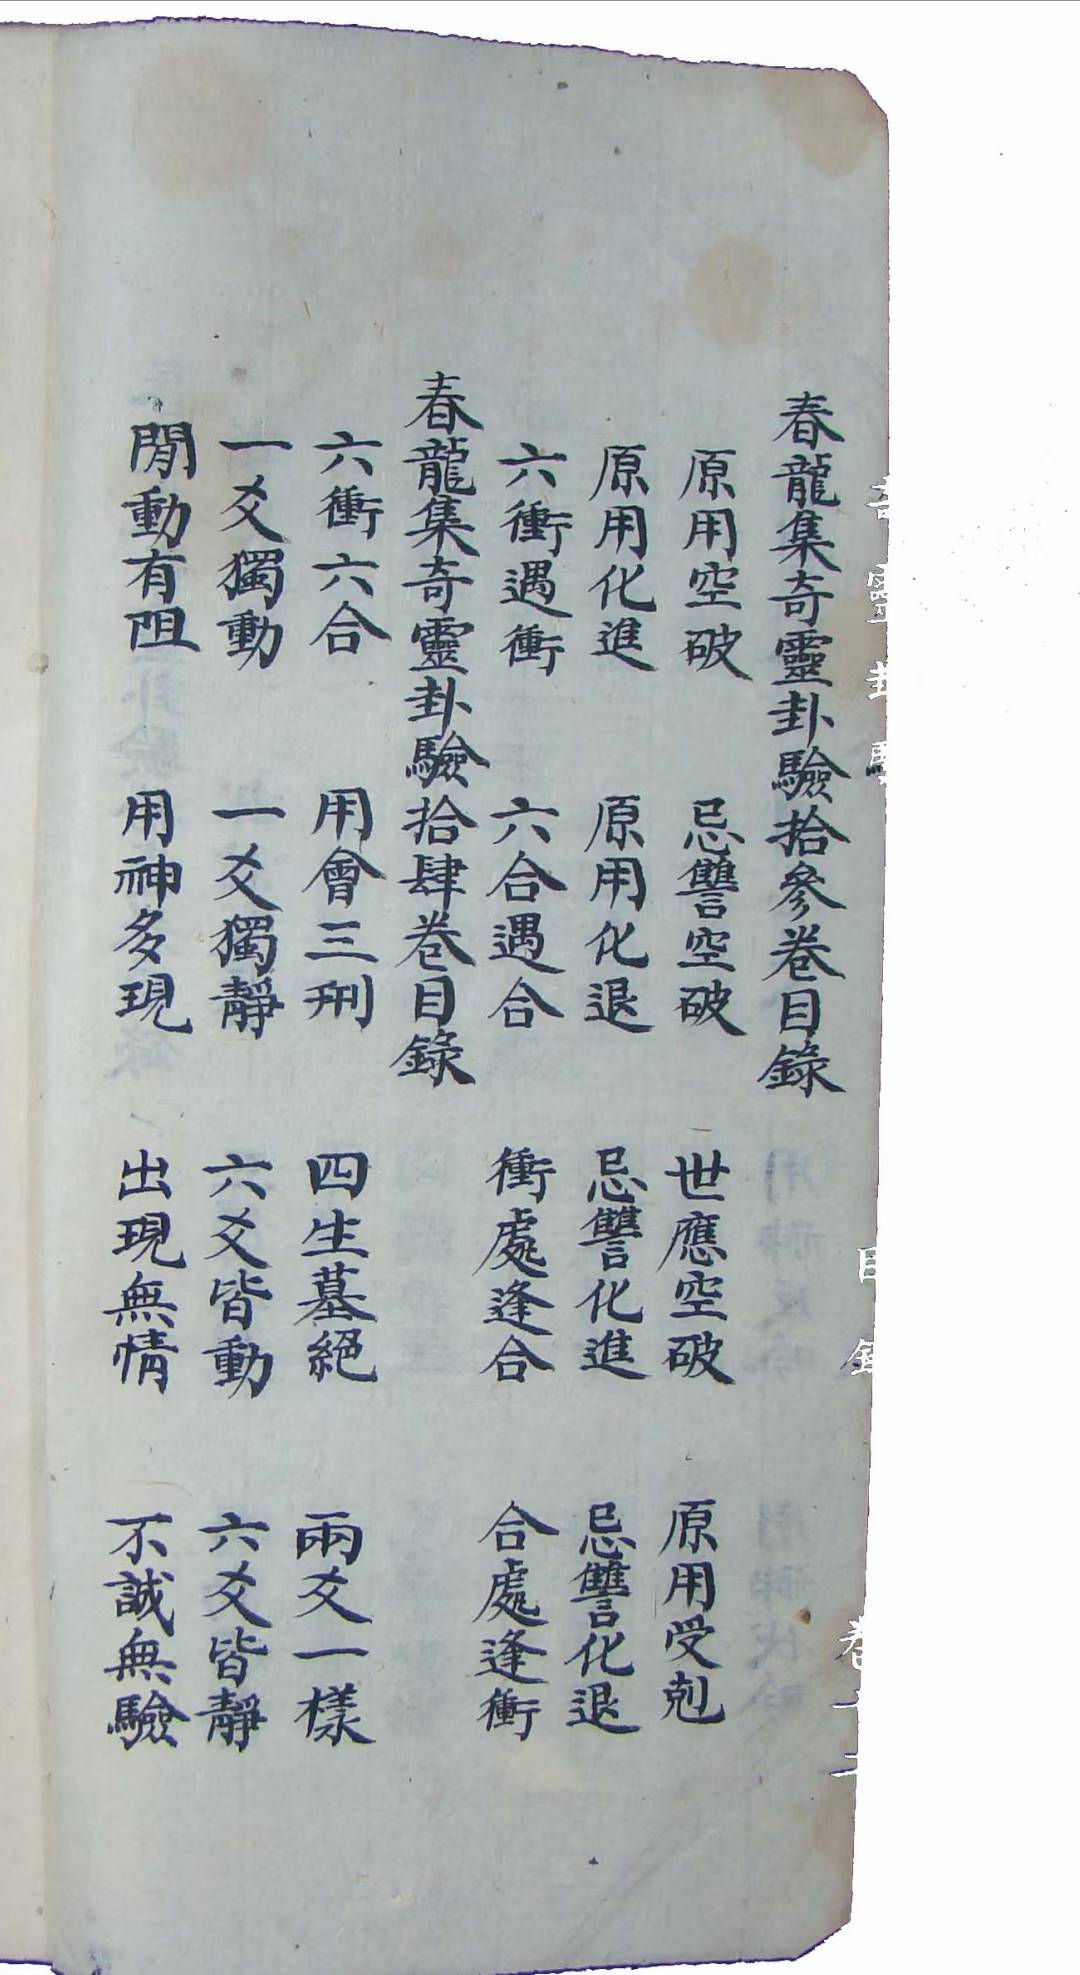 春龍集奇靈卦驗拾參卷目錄
原用空破 忌讐空破 世應空破 原用受剋
原用化進 原用化退 忌讐化進 忌讐化退
六衝遇衝 六合遇合 衝處逢合 合處逢衝
春龍集奇靈卦驗拾肆卷目錄
六衝六合 用會三刑 四生墓絕 兩爻一樣
一爻獨動 一爻獨靜 六爻皆動 六爻皆靜
閒動有阻 用神多現 出現無情 不誠無驗